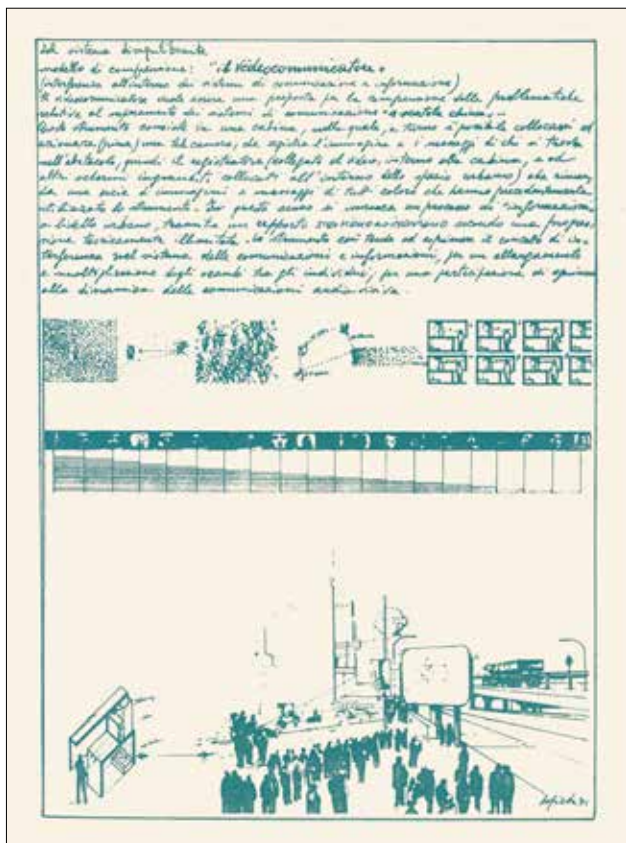 Del sistema disequilibrante
modello di comprensione: "il videocomunicatore"
(interferenza all'interno dei sistemi di comunicazione e informazione)
Il videocomunicatore vuole essere una proposta per la comprensione delle problematiche
relative al superamento dei sistemi di comunicazione "a scatola chiusa".
Questo strumento consiste in una cabina, nella quale, a turno è possibile collocarsi ed
azionare (prima) una tel camera, che registra l'immagine e i messaggi di chi si trova
nell'abitacolo, quindi il registratore (collegato al video, interno alla cabina, e ad
altri schermi ingranditi, collocati all'interno dello spazio urbano) che rimanda
da una serie di immagini e messaggi di tutti coloro che hanno precedentemente
utilizzato lo strumento. In questo senso si innesca un processo di "informazione
a livello urbano, tramite un rapporto secondo una progres
sione teoricamente illimitata. Lo strumento così tende ad esprimere il concetto di in-
terferenza nel sistema delle comunicazioni e informazioni, per un allargamento
e moltiplicazione degli scambi tra gli individui, per una partecipazione di ognuno
alla dinamica delle comunicazioni audiovisive.